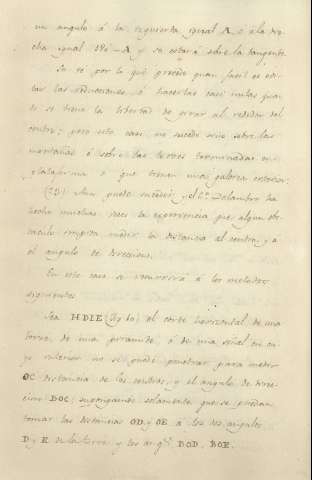 un angulo á la izquierda igual A, o á la dre
cha igual 180 - A y se estará sobre la tangente.
Se vé por lo que precede quan facil es evi
tar las reducciones ó hacerlas casi nulas quan
do se tiene la libertad de errar al rededor del
centro; pero esto casi no sucede sino sobre las
montañas ó sobre las torres terminadas en
plataforma ó que tienen una galeria exterior.
puede suceder, y el Delambre ha
hecho muchas veces la experiencia que algun obs
taculo impida medir la distancia al centro, y a
el angulo de direccion.
En este caso se recurrirá á los metodos
siguientes.
Sea HDIE (fig. ) el corte horizontal de una
torre, de una piramide, ó de una señal en cu
yo interior no se puede penetrar para medir
OC distancia de los centros, y el angulo de direc
cion DOC; supongamos solamente que se puedan
tomar las distancias OD y OE á los dos angulos
D y E de la torre y los ang.s BOD, BOE.